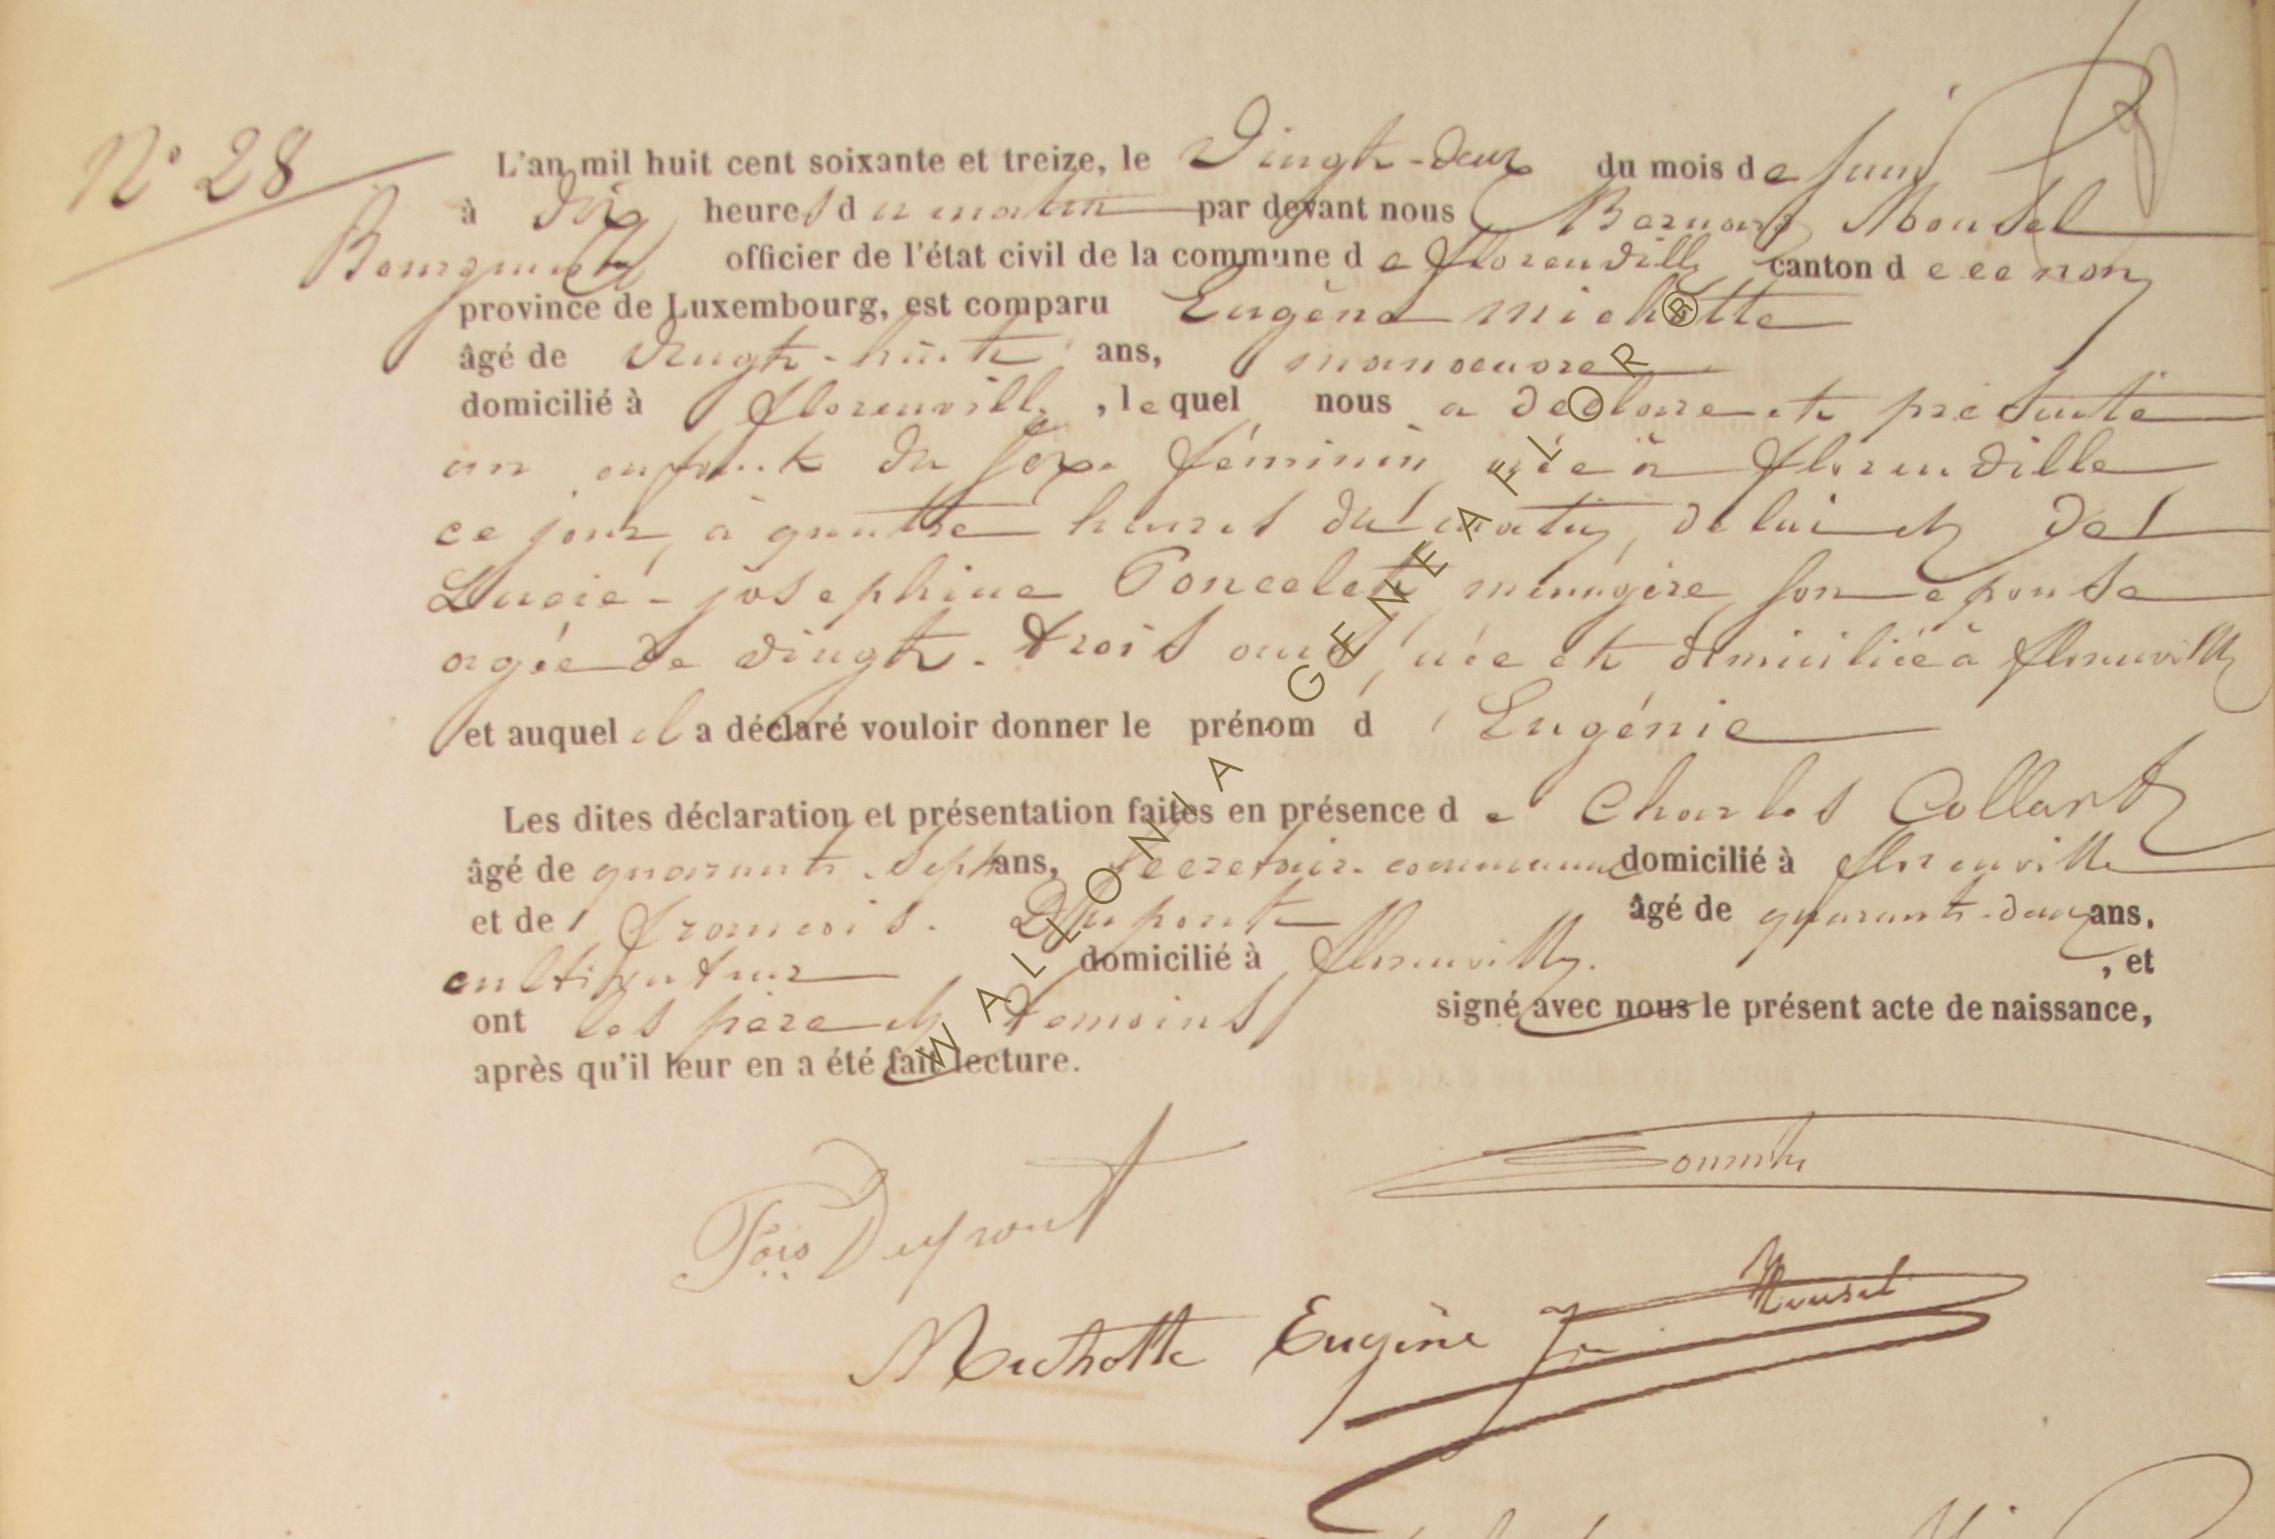 N° 28
L'an mil huit cent soixante et treize, le Vingt-deux du mois de Juin
à dix heures du matin par devant nous Bernard Mousel
Bourgmestre officier de l'état civil de la commune de florenville canton de ee non
province de Luxembourg, est comparu Eugène Michotte
âgé de Vingt-huit ans, manoeuvre
domicilié à florenville, lequel nous a déclaré et présenté
un enfant du sexe féminin née à florenville
ce jour, à quattre heures du matin, de lui et de
Lucie-joséphine Poncelet, ménagère, son épouse
agée de vingt-trois ans, née et domiciliée à florenville
et auquel il a déclaré vouloir donner le prénom d'Eugénie
Les dites déclaration et présentation faites en présence de Charles Collart
âgé de quarante-sept ans, secretaire communal domicilié à florenville
et de françois Dupont âgé de quarante-deux ans,
cultivateur domicilié à florenville, et
ont les père et témoins signé avec nous le présent acte de naissance,
après qu'il leur en a été fait lecture.
Fçois Dupont
Michotte Eugène
Mousel
WALLONIA GENEAFLOR B